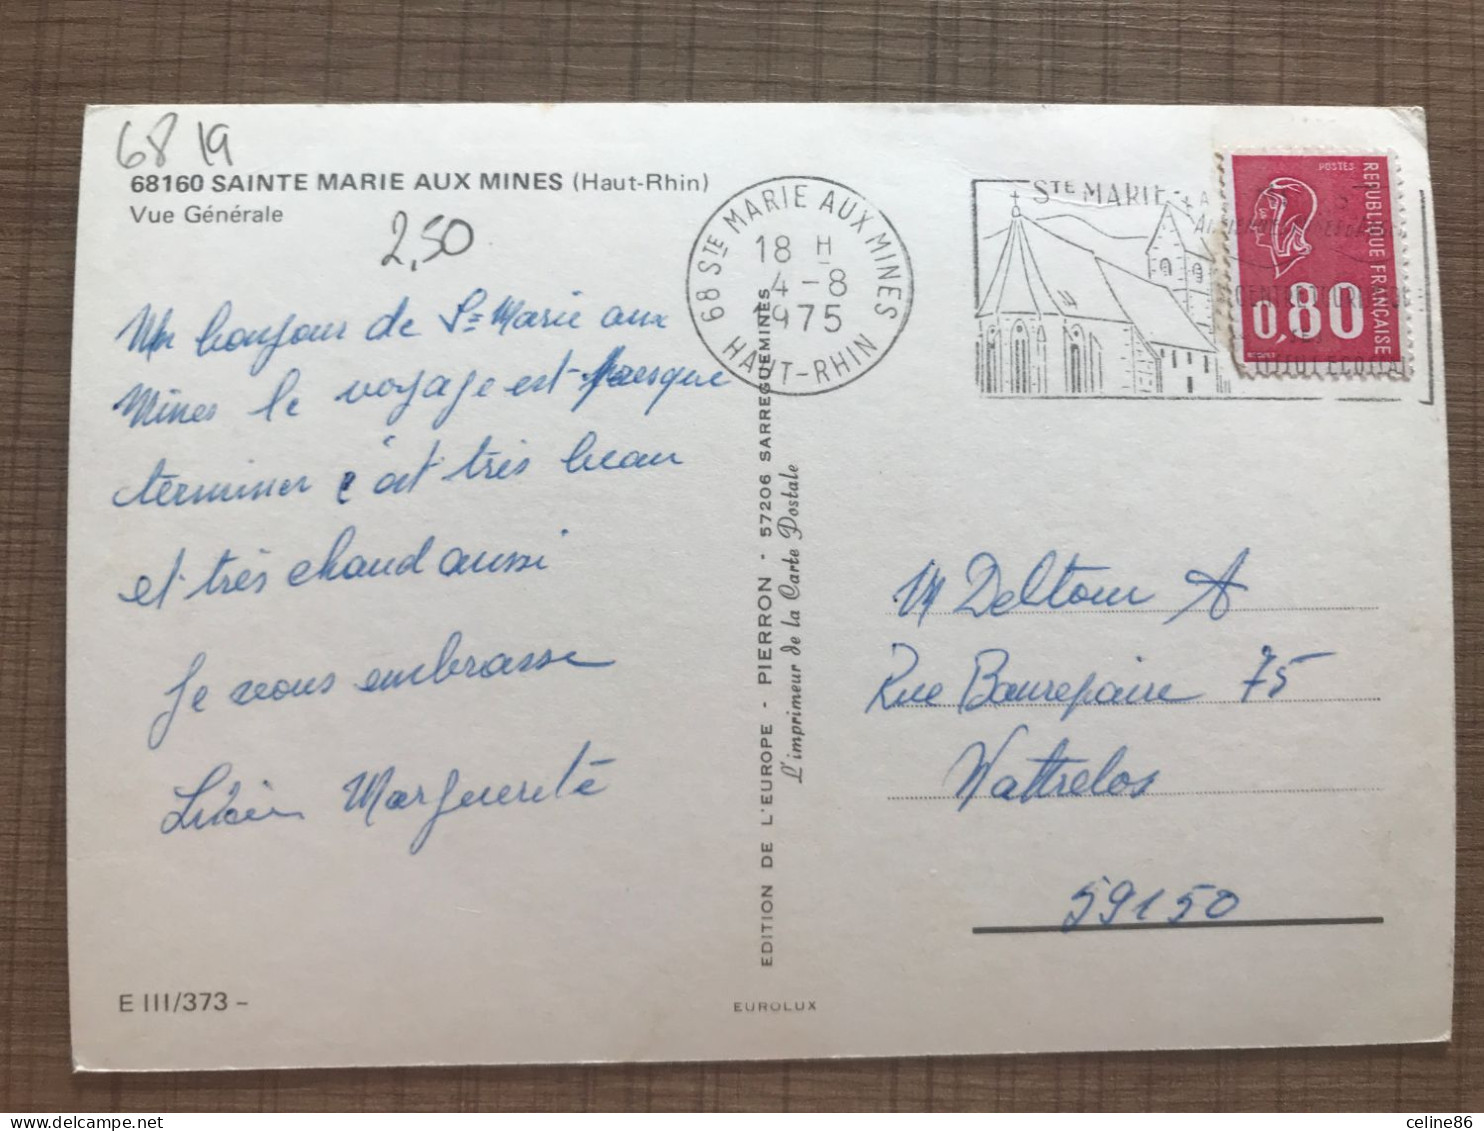 68 19
68160 SAINTE MARIE AUX MINES (Haut-Rhin)
Vue Générale
2,50
Un bonjour de Ste Marie aux
Mines le voyage est presque
terminer c'est très beau
et très chaud aussi
Je vous embrasse
Marguerite
E III/373 -
EDITION DE L'EUROPE - PIERRON - 57206 SARREGUEMINES
L'imprimeur de la Carte Postale
EUROLUX
68 STE MARIE AUX MINES
18 H
4-8
1975
HAUT-RHIN
STE MARIE-
POSTES
REPUBLIQUE FRANÇAISE
0,80
M Deltour A
Rue Beaurepaire 75
Wattrelos
59150
celine86